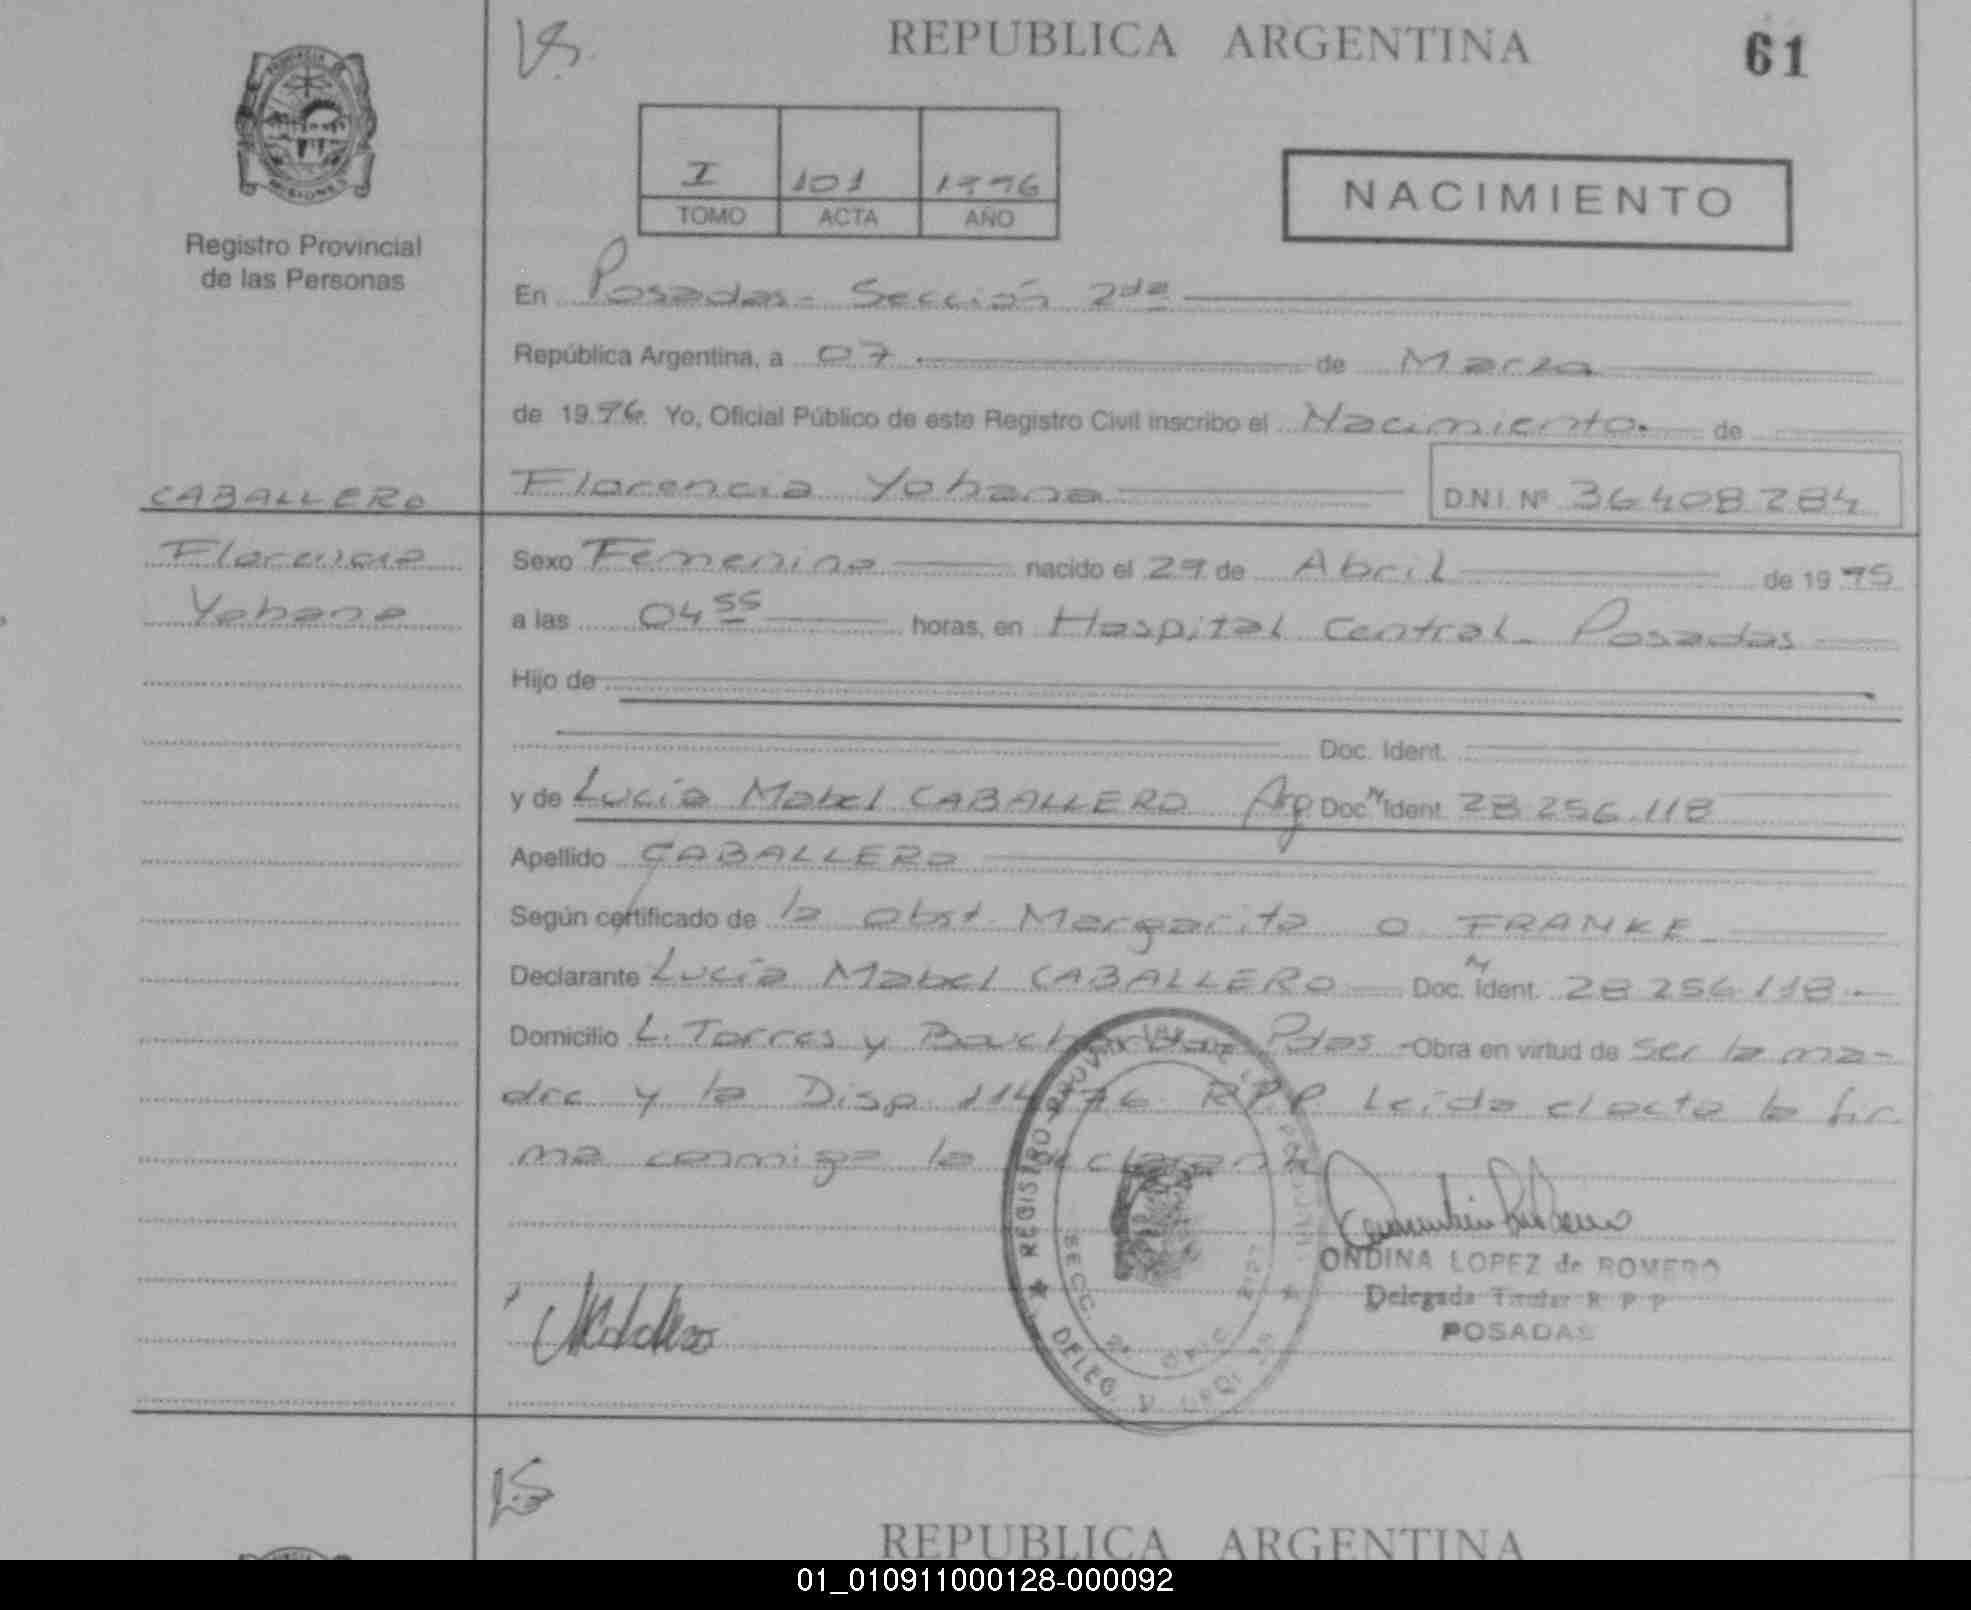 REPUBLICA ARGENTINA
61
PROVINCIA
MISIONES
Registro Provincial
de las Personas
I 101 1996
TOMO ACTA AÑO
NACIMIENTO
En Posadas - Sección 2da
República Argentina, a 07 de Marzo
de 1996. Yo, Oficial Público de este Registro Civil inscribo el Nacimiento. de
CABALLERO
Florencia Yohana
D.N.I. Nº 36408284
Florencia
Yohana
Sexo Femenino nacido el 29 de Abril de 1995
a las 04 55 horas, en Hospital Central - Posadas
Hijo de
Doc. Ident.
y de Lucía Mabel CABALLERO Arg. Doc. N Ident. 28.256.118
Apellido CABALLERO
Según certificado de la obst. Margarita O FRANKE
Declarante Lucía Mabel CABALLERO Doc. N Ident. 28 256 118.-
Domicilio L. Torres y Pdas - Obra en virtud de ser la ma-
dre y la Disp. R.P.P. Leída el acta la fir
ma conmigo la declarante
REGISTRO PROVINCIAL DE LAS PERSONAS
SECC. 2ª
DELEG.
ONDINA LOPEZ de ROMERO
Delegada Titular R P P
POSADAS
REPUBLICA ARGENTINA
01_010911000128-000092